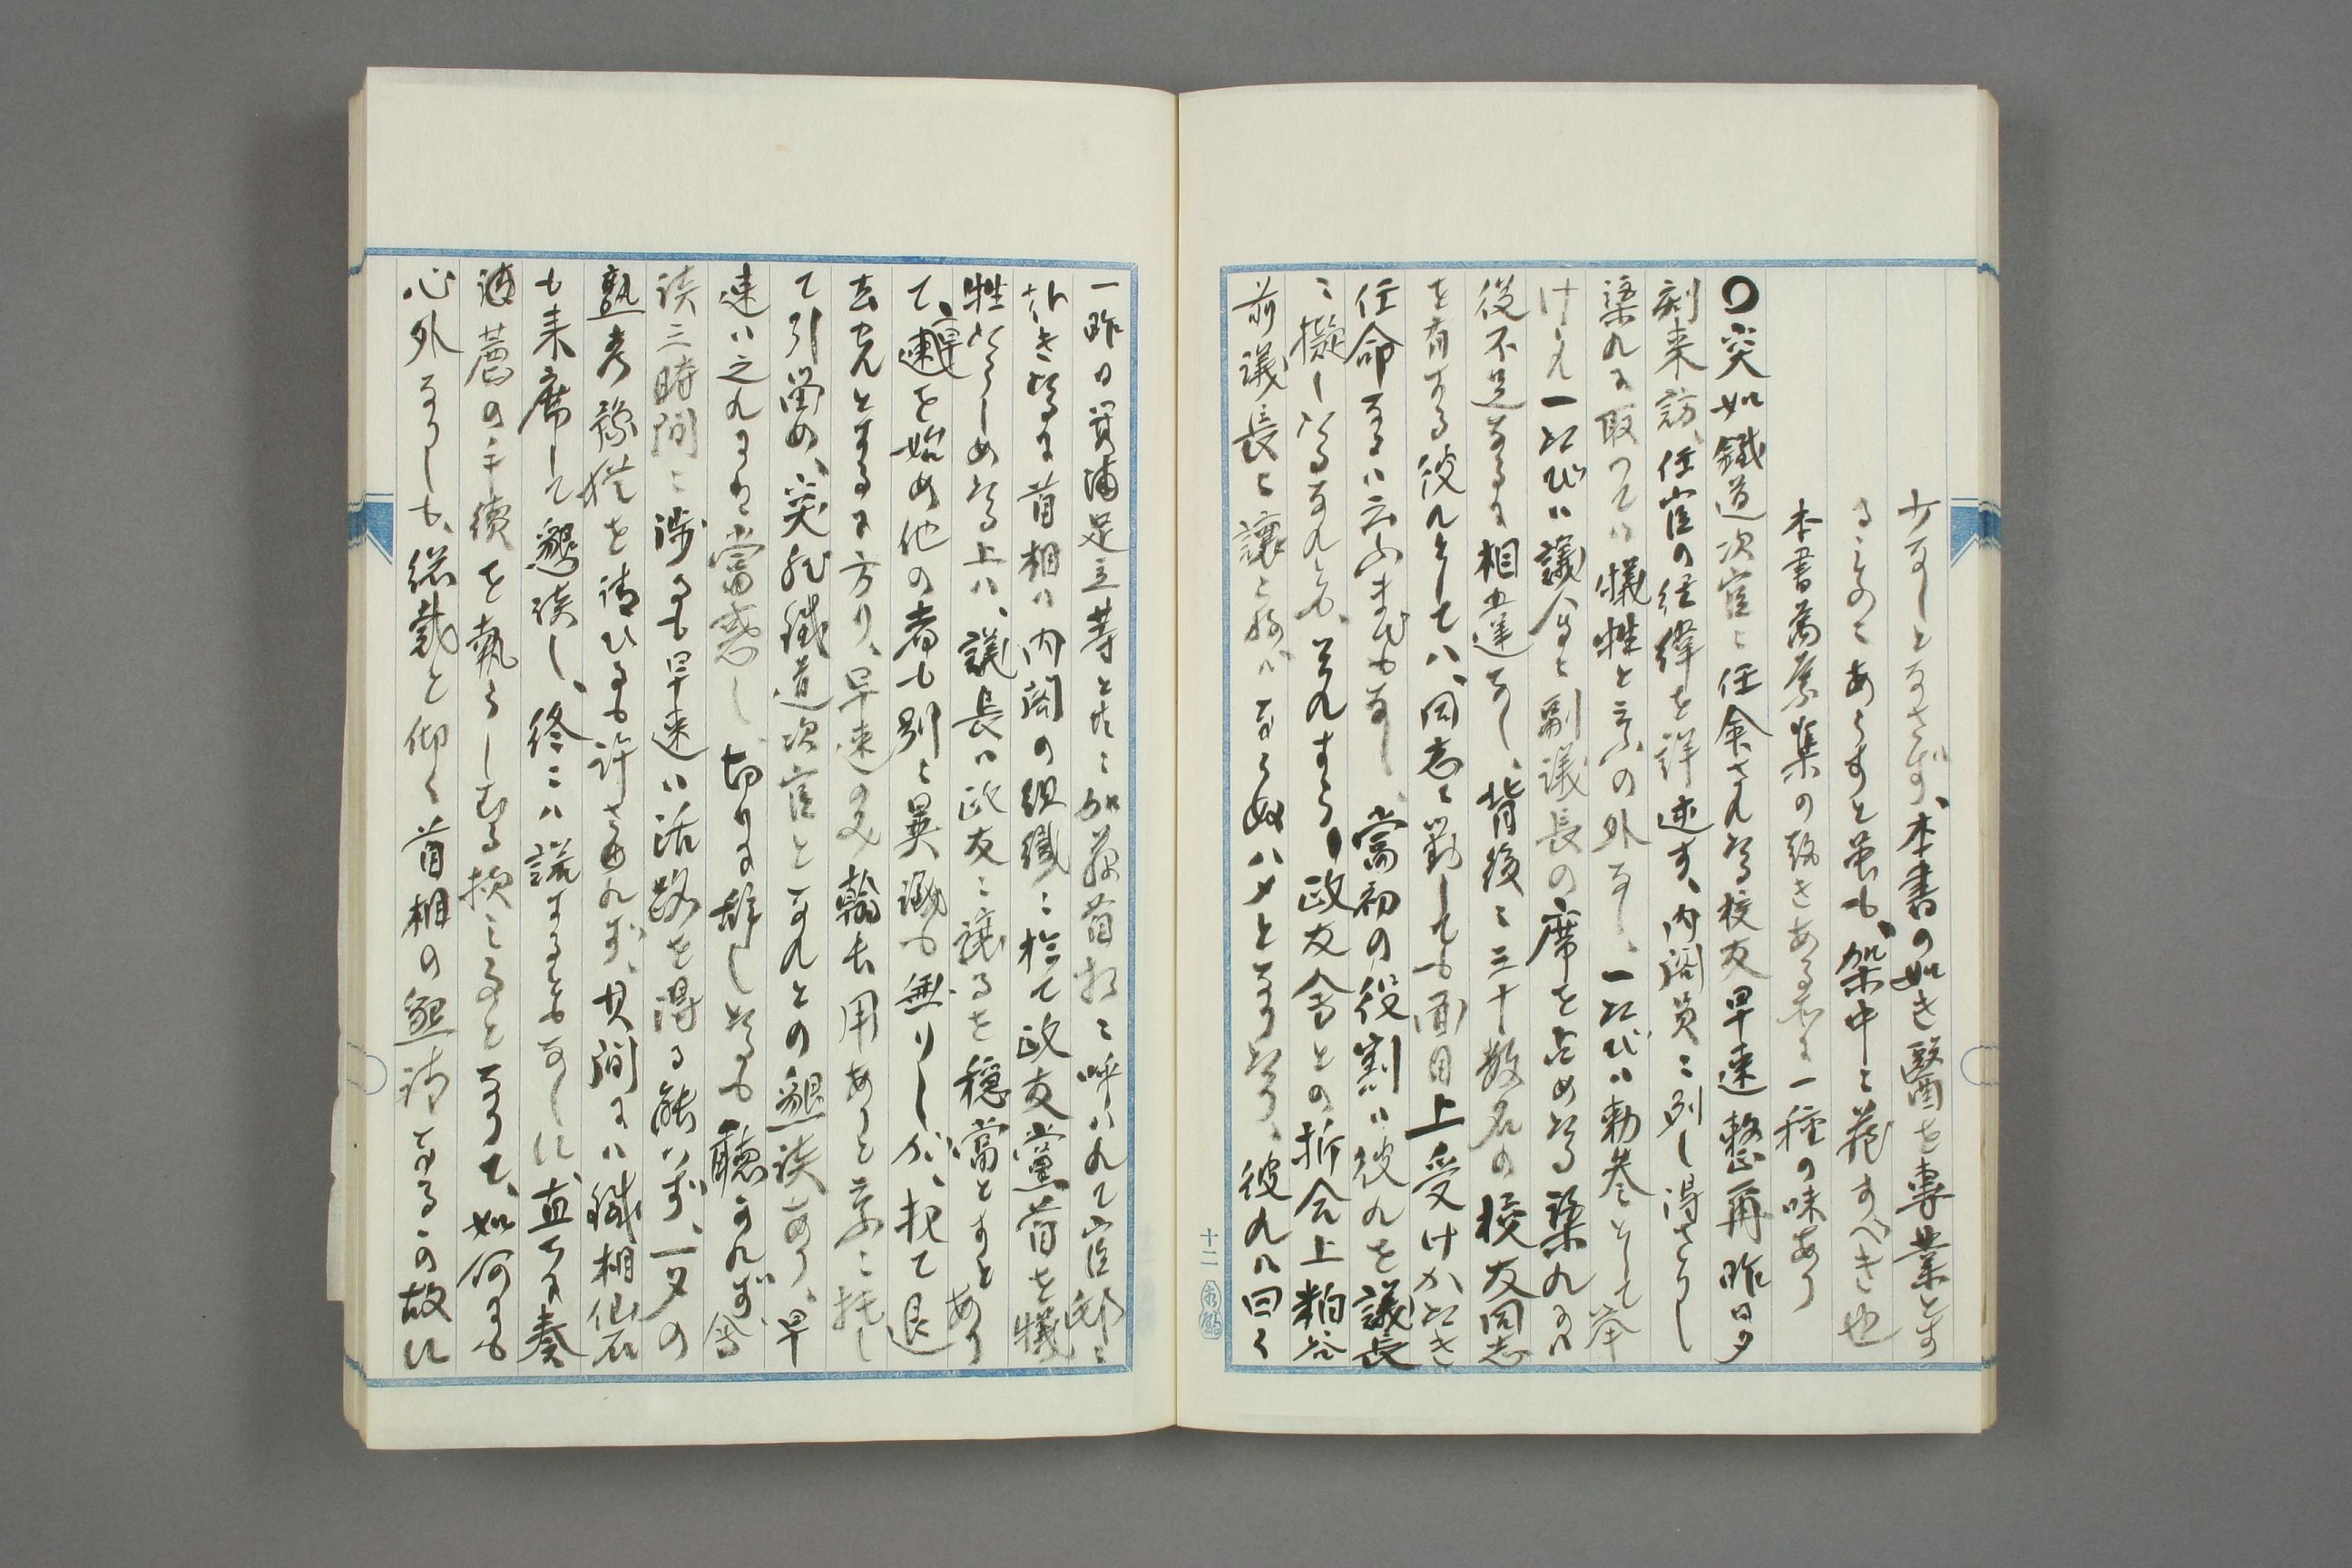 少なしとなさず、本書の如き醫を専業とす
るものにあらずと雖も、架中に蔵すべき也
本書萬葉集の趣きあるホに一種の味あり
〇突如鐵道次官に任命されたる校友早速整爾昨日夕
刻来訪、任官の経緯を詳述す、内閣員に列し得さりし
渠れに取つては犠牲と云ふの外なし、一たびハ勅参として挙
けられ一たびハ議会に副議長の席を占めたる渠れにハ
役不足なるに相違なし、背後に三十数名の校友同志
を有する彼れとしてハ、同志に対しても面目上受けかたき
任命なるハ云ふまでもなし、當初の役割ハ彼れを議長
に擬したるなれとも、それすら政友会との折合上粕谷
前議長に譲る
彼れハ曰く
一昨日箕浦足立等と共に加藤首相に呼ハれて官邸に
赴きたるに首相ハ内閣の組織に於て政友黨首を犠
牲たらしめたる上ハ、議長ハ政友に譲るを穏當とすとあり
て、早速を始め他の者も別に異議も無りしが、扨て退
去せんとするに方り、早速のミ翰長用ありと云ふに托し
て引留め、突然鐵道次官となれとの懇談あり、早
速ハ之れにハ當惑し、切りに辞したるも聴かれず、会
談三時間に渉るも早速ハ活路を得る能ハず、一夕の
熟考猶予を請ひたるも許されず、其間にハ鐵相仙石
も来席して懇談し、終にハ諾するともなしに、直ちに奏
薦の手續を執らしむる
となりて、如何にも
心外なりしも、総裁と仰く首相の懇請なるの故に
十二